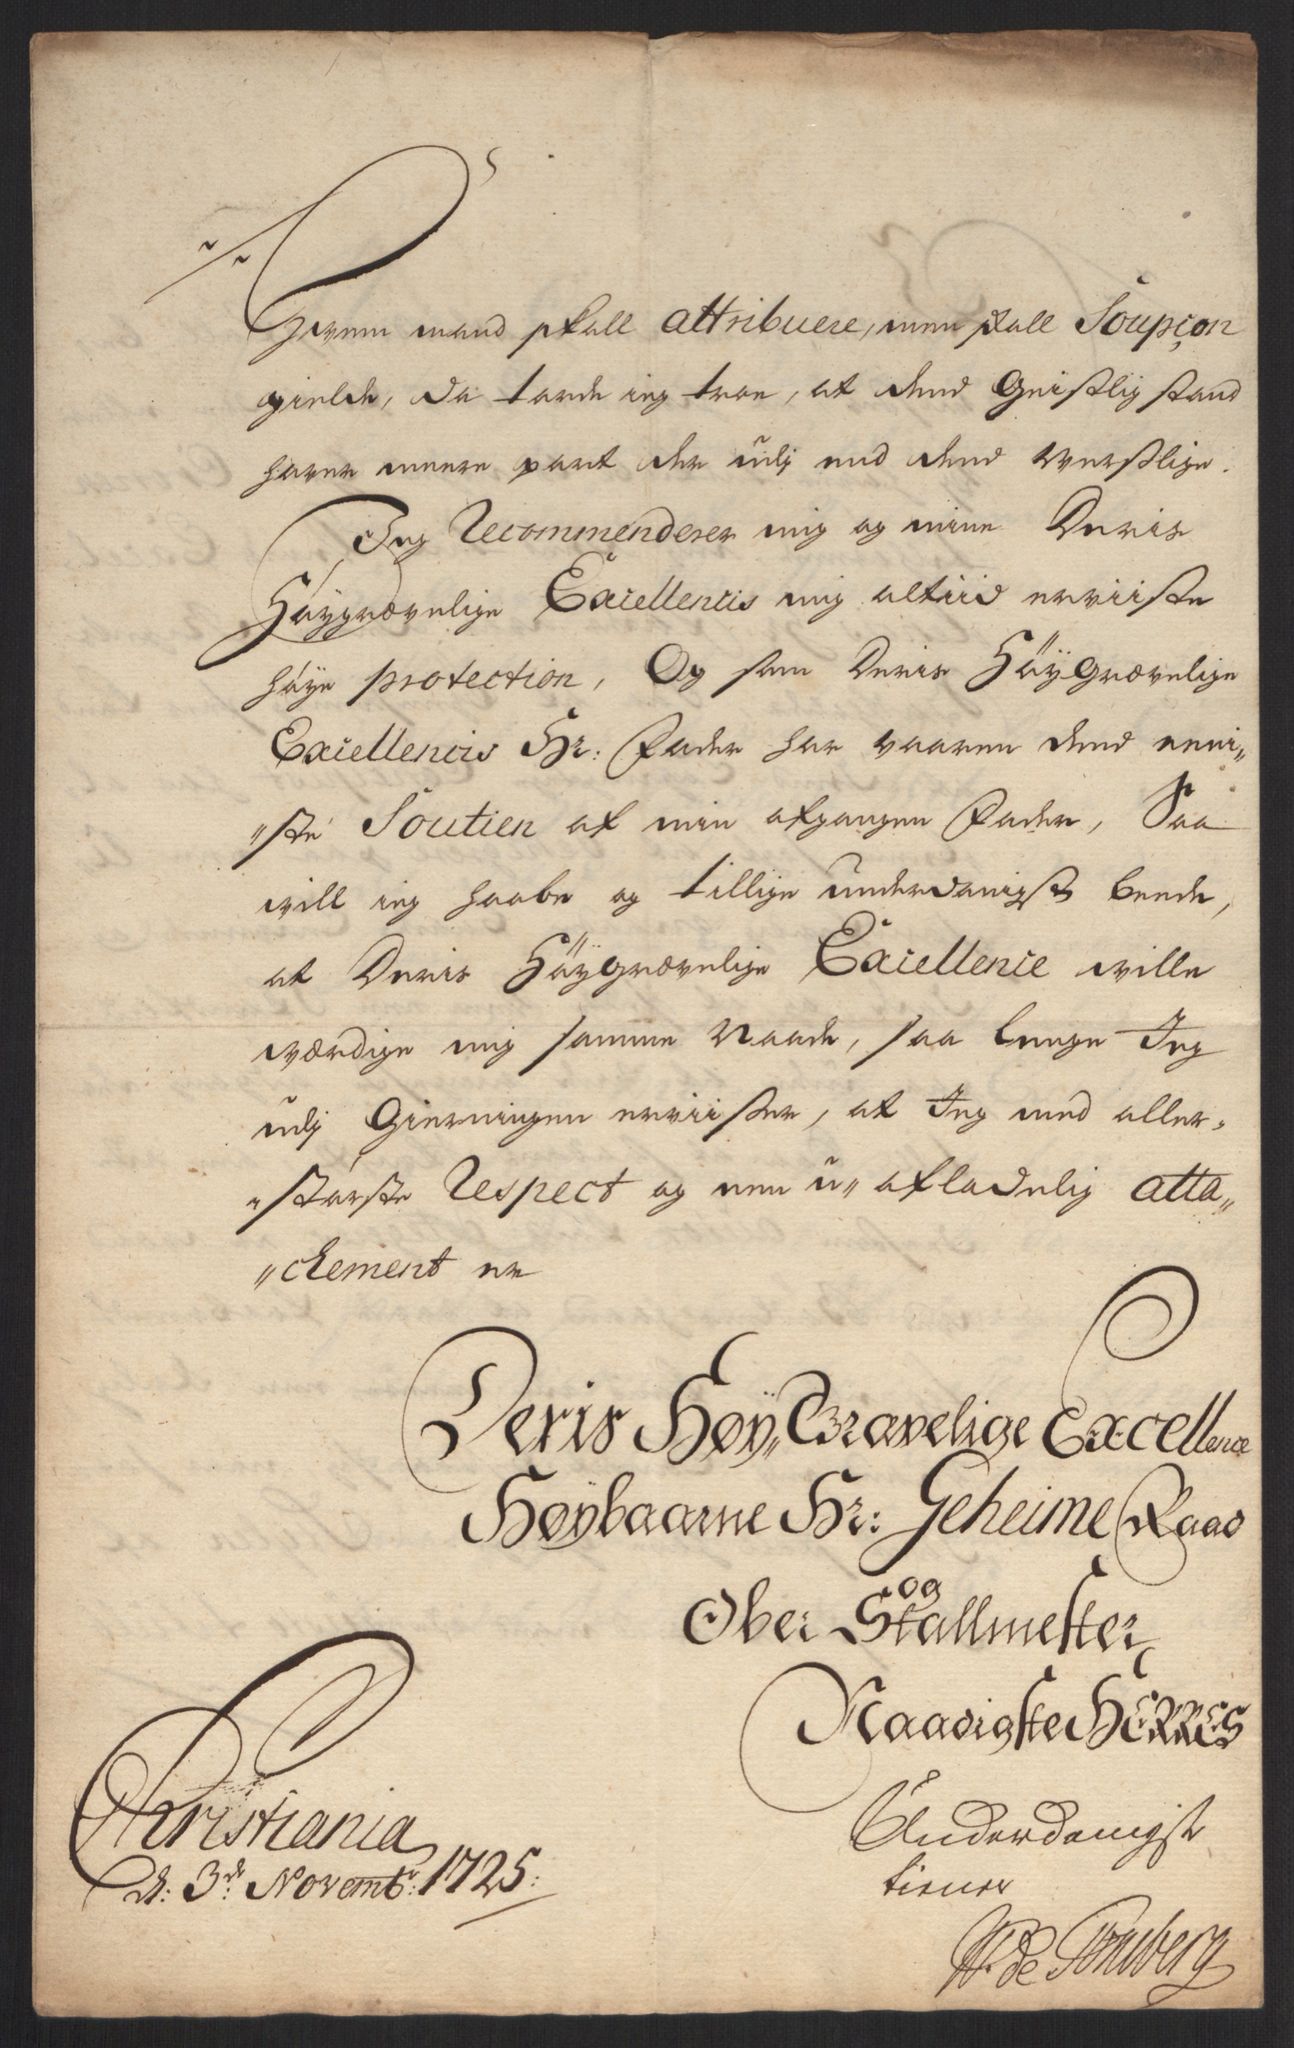 hvem mand skall attribuere, men skall Soupçon
gielde, da torde ieg troe, at dend Geistlig stand
haver meere part der udj end dend Verslige.
Jeg Recommenderer mig og mine Deris
Höygrævelige Excellencis mig altiid erviiste
höye protection, Og som Deris HöyGrævelige
Excellencis Hr: Fader har vaaren dend eeni„
„ste Soutien af min afgangen Fader, Saa
will ieg haabe og tillige underdanigst beede,
at Deris HöyGrævelige Excellence wille
værdige mig samme Naade, saa lenge Jeg
udj Gierningen erviister, at Jeg med aller„
„störste Respect og een u„afladelig atta„
„chement er
Deris Høy„Gravelige Excellence
Høybaarne Hr: Geheime Raad
og
Ober Stallmester
Naadigste HERRES
Underdanigst
tiener
de
Christiania
d: 3de Novembr: 1725: